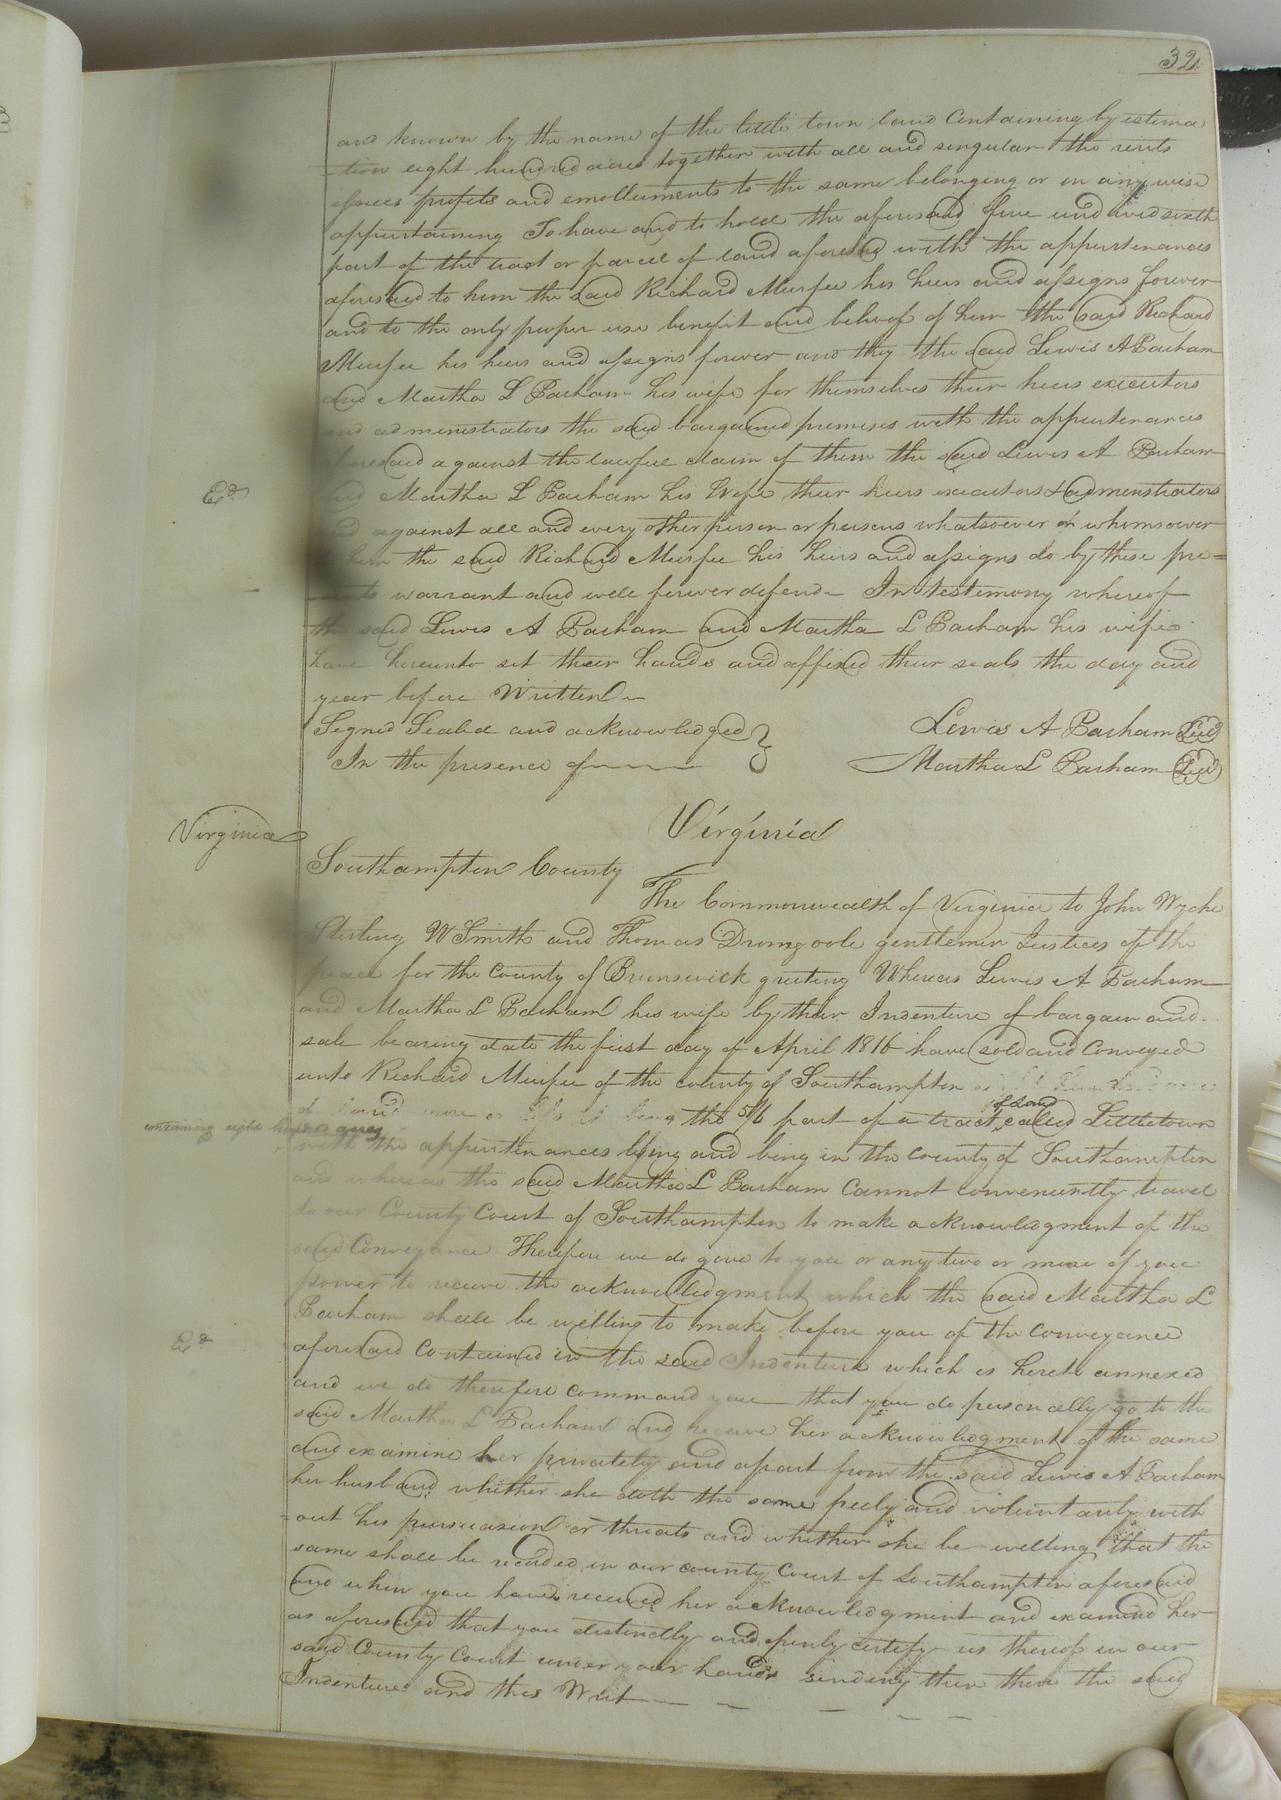 32
and known by the name of the little town land Containing by estima
-tion eight hundred acres together with all and singular the rents
issues profits and emoluments to the same belonging or in any wise
appurtaining To have and to hold the aforesaid five undivid sixth
part of the tract or parcel of land aforesaid with the appurtenances
aforesaid to him the said Richard Murfee his heirs and assigns forever
and to the only proper use benefit and behoof of him the said Richard
Murfee his heirs and assigns forever and they the said Lewis A Parham
and Martha L Parham his wife for themselves their heirs executors
and administrators the said bargained premises with the appurtenances
aforesaid against the lawful claim of them the said Lewis A Parham
and Martha L Parham his Wife their heirs executors & admenistrators
and against all and every other person or persons whatsoever or whomsoever
him the said Richard Murfee his heirs and assigns do by these pre=
-sents warrant and well forever defend In testimony whereof
the said Lewis A Parham and Martha L Parham his wife
have hereunto set their hands and affixed their seals the day and
year before Written
Segned Sealed and acknowledged
In the presence of
Lewis A Parham Seal
Martha L Parham Seal
Exd
Virginia
Virginia
Southampton County
The Commonwealth of Virginia to John Wyche
Sterling W Smith and Thomas Dromgoole gentlemen Justices of the
peace for the County of Brunswick greeting Whereas Lewis A Parham
and Martha L Parham his wife by their Indenture of bargain and
sale bearing date the first day of April 1816 have sold and Conveyed
unto Richard Murfee of the county of Southampton
of land more or less it being the 5/6 part of a tract of land called Littletown
containing eight hundred acres
with the appurtinances lying and being in the county of Southampton
and whereas the said Martha L Parham Cannot conveniently travel
to our County Court of Southampton to make acknowledgment of the
said Conveyance Therefore we do give to you or any two or more of you
power to receive the acknowledgment which the said Martha L
Parham shall be willing to make before you of the Conveyance
aforesaid Contained in the said Indenture which is hereto annexed
and we do therefore command you that you do personally go to the
said Martha L Parham and receive her acknowledgment of the same
and examine her privately and apart from the said Lewis A Parham
her husband whether she doth the same freely and voluntarily with
=out his persuasion or threats and whether she be welling that the
same shall be recorded in our county Court of Southampton aforesaid
and when you have received her acknowledgment and examined her
as aforesaid that you distinctly and openly certify us thereof in our
said County Court under your hands sending then there the said
Indenture and this Writ
Exd